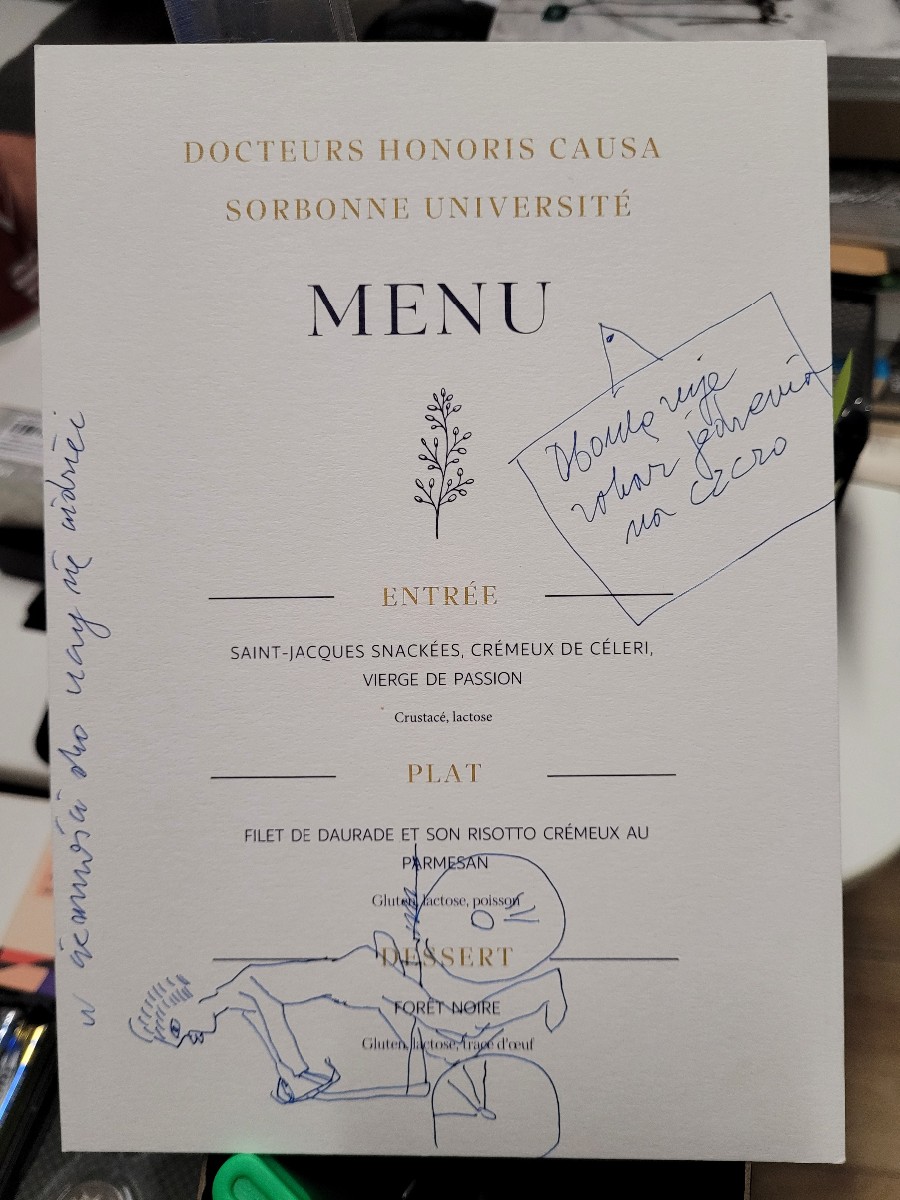 DOCTEURS HONORIS CAUSA
SORBONNE UNIVERSITÉ
MENU
na
ENTRÉE
SAINT-JACQUES SNACKÉES, CRÉMEUX DE CÉLERI,
VIERGE DE PASSION
Crustacé, lactose
PLAT
FILET DE DAURADE ET SON RISOTTO CRÉMEUX AU
PARMESAN
Gluten, lactose, poisson
DESSERT
FORÊT NOIRE
Gluten, lactose, trace d'œuf